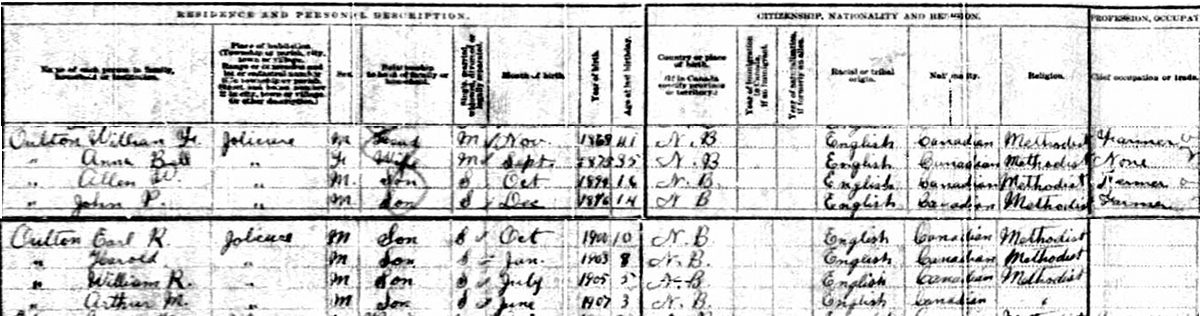 RESIDENCE AND PERSONAL DESCRIPTION.
CITIZENSHIP, NATIONALITY AND RELIGION.
PROFESSION, OCCUPAT
Name of each person in family, household or institution.
Place of habitation
Sex.
Relationship to head of family or household.
Single, married, widowed, divorced or legally separated.
Month of birth
Year of birth.
Age at last birthday.
Country or place of birth. (If in Canada specify province or territory.)
Year of immigration to Canada, if an immigrant.
Year of naturalization, if formerly an alien.
Racial or tribal origin.
Nationality.
Religion.
Chief occupation or trade.
Oulton William Jolicure M Head M Nov. 1869 41 N.B English Canadian Methodist Farmer
" Anna Bell " F Wife M Sept. 1875 35 N.B English Canadian Methodist None
" Allen W. " M. Son S Oct 1894 16 N.B. English Canadian Methodist Farmer
" John P. " M Son S Dec 1896 14 N B English Canadian Methodist Farmer
Oulton Earl R. Jolicure M Son S Oct 1900 10 N.B. English Canadian Methodist
" Harold " M Son S Jan. 1903 8 N.B. English Canadian Methodist
" William R. " M Son S July 1905 5 N.B English Canadian Methodist
" Arthur M. " M Son S June 1907 3 N.B. English Canadian "